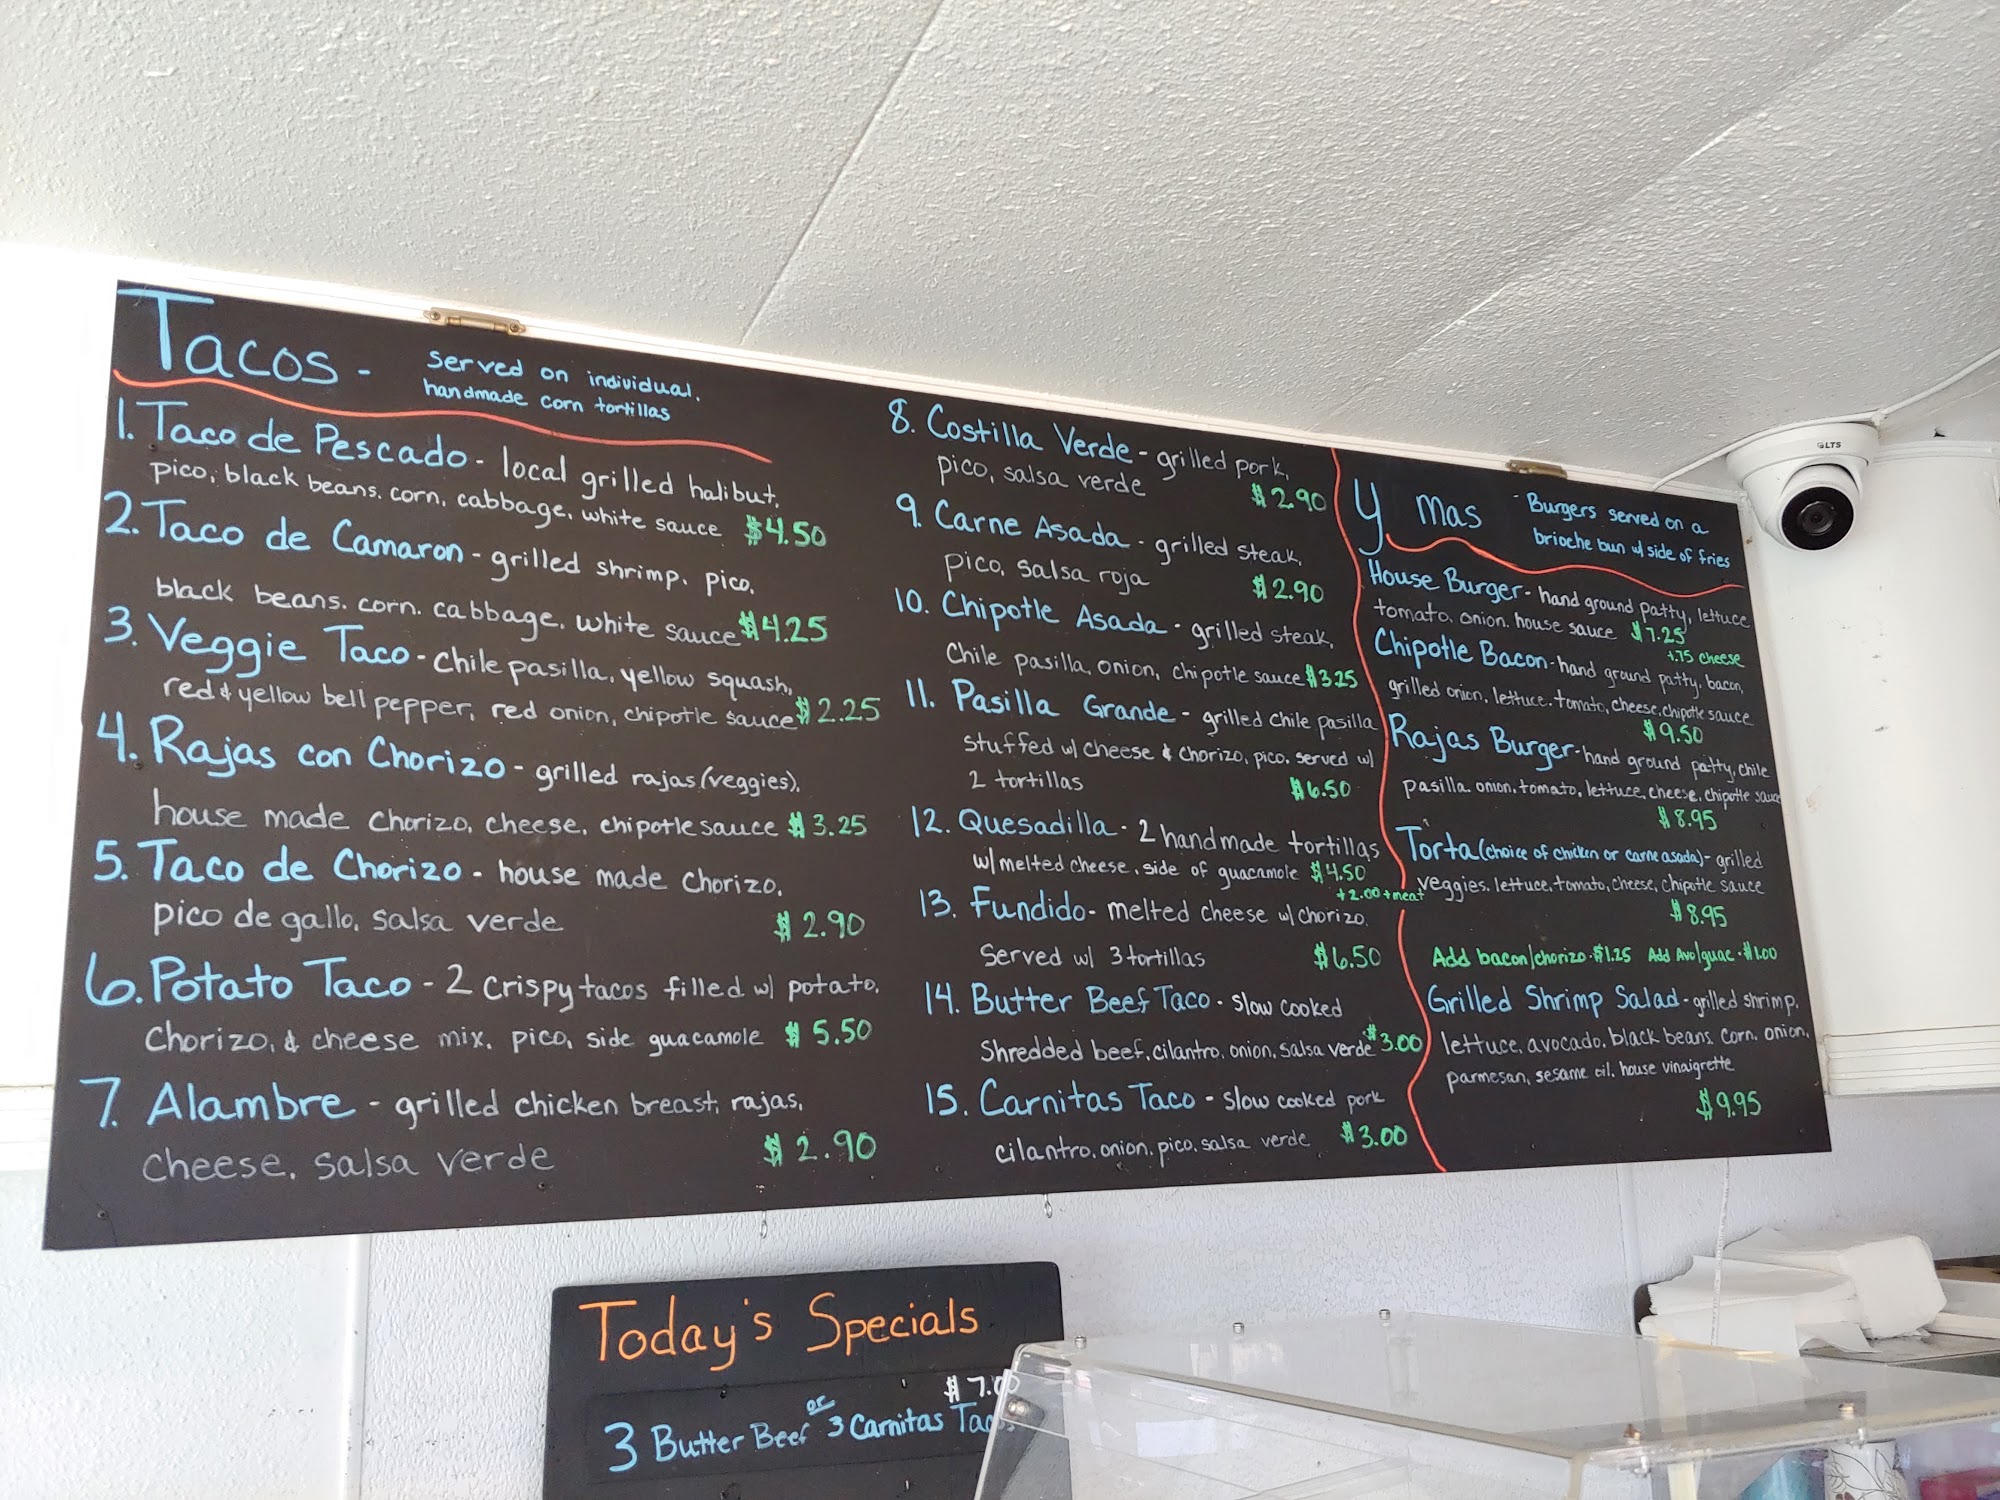 Tacos -
served on individual,
handmade corn tortillas
1. Taco de Pescado - local grilled halibut,
pico, black beans, corn, cabbage, white sauce $4.50
2. Taco de Camaron - grilled shrimp, pico,
black beans, corn, cabbage, white sauce $4.25
3. Veggie Taco - Chile pasilla, yellow squash,
red & yellow bell pepper, red onion, chipotle sauce $2.25
4. Rajas con Chorizo - grilled rajas (veggies),
house made chorizo, cheese, chipotle sauce $3.25
5. Taco de Chorizo - house made chorizo,
pico de gallo, salsa verde $2.90
6. Potato Taco - 2 crispy tacos filled w/ potato,
chorizo, & cheese mix, pico, side guacamole $5.50
7. Alambre - grilled chicken breast, rajas,
cheese, salsa verde $2.90
8. Costilla Verde - grilled pork,
pico, salsa verde $2.90
9. Carne Asada - grilled steak,
pico, salsa roja $2.90
10. Chipotle Asada - grilled steak,
Chile pasilla, onion, chipotle sauce $3.25
11. Pasilla Grande - grilled chile pasilla
stuffed w/ cheese & chorizo, pico, served w/
2 tortillas $6.50
12. Quesadilla - 2 handmade tortillas
w/ melted cheese, side of guacamole $4.50
+2.00 + meat
13. Fundido - melted cheese w/ chorizo,
Served w/ 3 tortillas $6.50
14. Butter Beef Taco - slow cooked
Shredded beef, cilantro, onion, salsa verde $3.00
15. Carnitas Taco - slow cooked pork
cilantro, onion, pico, salsa verde $3.00
Y mas
Burgers served on a
brioche bun w/ side of fries
House Burger - hand ground patty, lettuce
tomato, onion, house sauce $7.25
+.75 cheese
Chipotle Bacon - hand ground patty, bacon,
grilled onion, lettuce, tomato, cheese, chipotle sauce
$9.50
Rajas Burger - hand ground patty, chile
pasilla, onion, tomato, lettuce, cheese, chipotle sauce
$8.95
Torta (choice of chicken or carne asada) - grilled
veggies, lettuce, tomato, cheese, chipotle sauce
$8.95
Add bacon/chorizo - $1.25 Add Avo/guac - $1.00
Grilled Shrimp Salad - grilled shrimp,
lettuce, avocado, black beans, corn, onion,
parmesan, sesame oil, house vinaigrette
$9.95
LTS
Today's Specials
$7.00
3 Butter Beef or 3 Carnitas